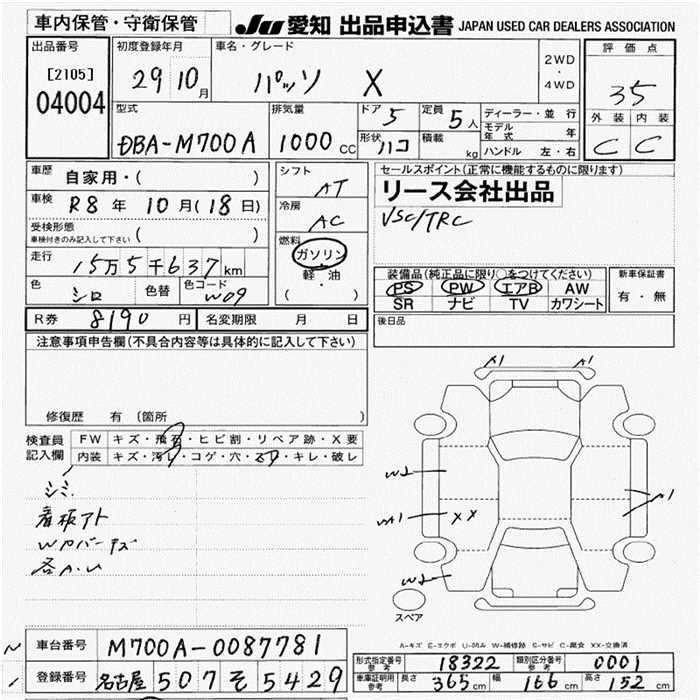 車内保管・守衛保管
JU 愛知 出品申込書 JAPAN USED CAR DEALERS ASSOCIATION
出品番号
[2105]
04004
初度登録年月
29 10月
車名・グレード
パッソ X
2WD
・
4WD
評価点
35
外装 内装
C C
型式
DBA-M700A
排気量
1000 CC
ドア 5
定員 5人
形状 ハコ
積載 kg
ディーラー・並行
モデル年式 年
ハンドル 左・右
車歴 自家用・( )
車検 R8年 10月(18日)
受検形態
車検付きのみ記入して下さい ( )
走行 15万5千637km
色 シロ 色替 色コード W09
シフト AT
冷房 AC
燃料
ガソリン
軽・油
( )
セールスポイント(正常に機能するものに限ります)
リース会社出品
VSC/TRC
装備品(純正品に限り○をつけてください)
PS PW エアB AW
SR ナビ TV カワシート
新車保証書
有・無
R券 8190円 名変期限 月 日
後日品
注意事項申告欄(不具合内容等は具体的に記入して下さい)
修復歴 有 〔箇所 〕
検査員記入欄
FW キズ・飛石・ヒビ割・リペア跡・X要
内装 キズ・汚レ・コゲ・穴・スレ・キレ・破レ
シミ
看板アト
各A.U
A1 A1
W2
A1
WA1
XX
W2
スペア
A-キズ E-エクボ U-凹み W-補修跡 S-サビ C-腐食 XX-交換済
車台番号 M700A-0087781
登録番号 名古屋 507 そ 5429
形式指定番号 参考 18322 類別区分番号 参考 0001
車庫証明用 参考 長さ 365cm 幅 166cm 高さ 152cm